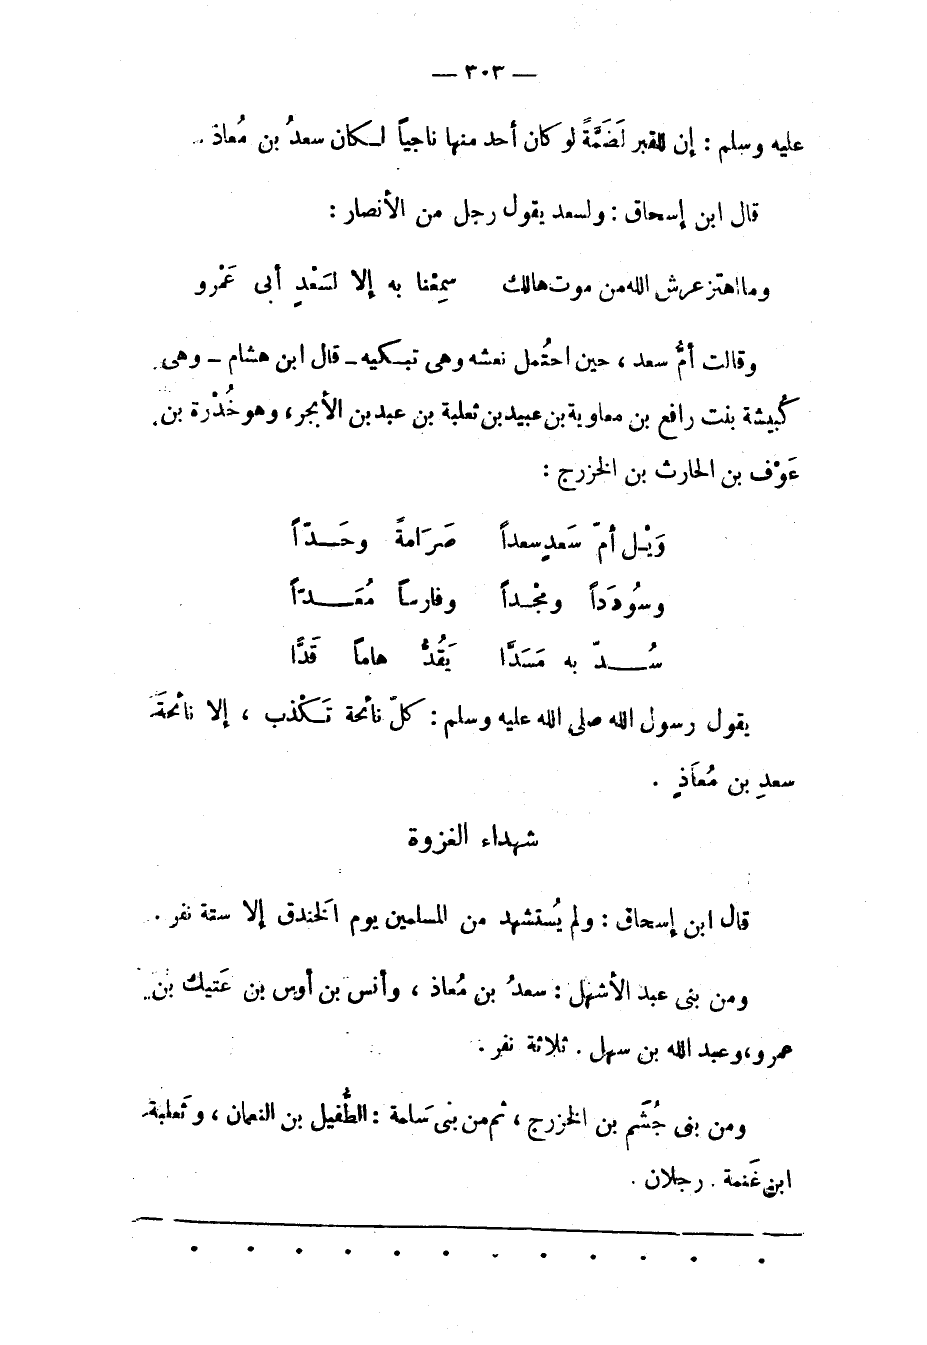 — ٣٠٣ —
عليه وسلم : إن للقبر لَضَمَّةً لو كان أحد منها ناجياً لكان سعدُ بن مُعاذ .
قال ابن إسحاق : ولسعد يقول رجل من الأنصار :
وما اهتز عرش الله من موت هالك سمِعْنا به إلا لسَعْدٍ أبى عَمْرو
وقالت أمُّ سعد ، حين احتُمل نعشه وهى تبكيه ـ قال ابن هشام ـ وهى
كُبيشة بنت رافع بن معاوية بن عبيد بن ثعلبة بن عبد بن الأبجر، وهو خُدْرة بن
عَوْف بن الحارث بن الخزرج :
وَيْل أمّ سَعدٍ سعداً صَرَامةً وحَدّاً
وسُودَداً ومجْداً وفارساً مُعَدّاً
سُدّ به مَسَدَّا يَقُدُّ هاماً قَدَّا
يقول رسول الله صلى الله عليه وسلم : كلّ نائحة تَكْذب ، إلا نائحةَ
سعدِ بن مُعاَذٍ .
شهداء الغزوة
قال ابن إسحاق : ولم يُستشهد من المسلمين يوم الَخندق إلا ستة نفر .
ومن بنى عبد الأشهل : سعدُ بن مُعاذ ، وأنس بن أوس بن عَتيك بن
عمرو، وعبد الله بن سهل . ثلاثة نفر .
ومن بنى جُشَم بن الخزرج ، ثم من بنى سَلمة : الطُّفيل بن النعمان ، وثَعلبة
ابن غَنمة . رجلان .